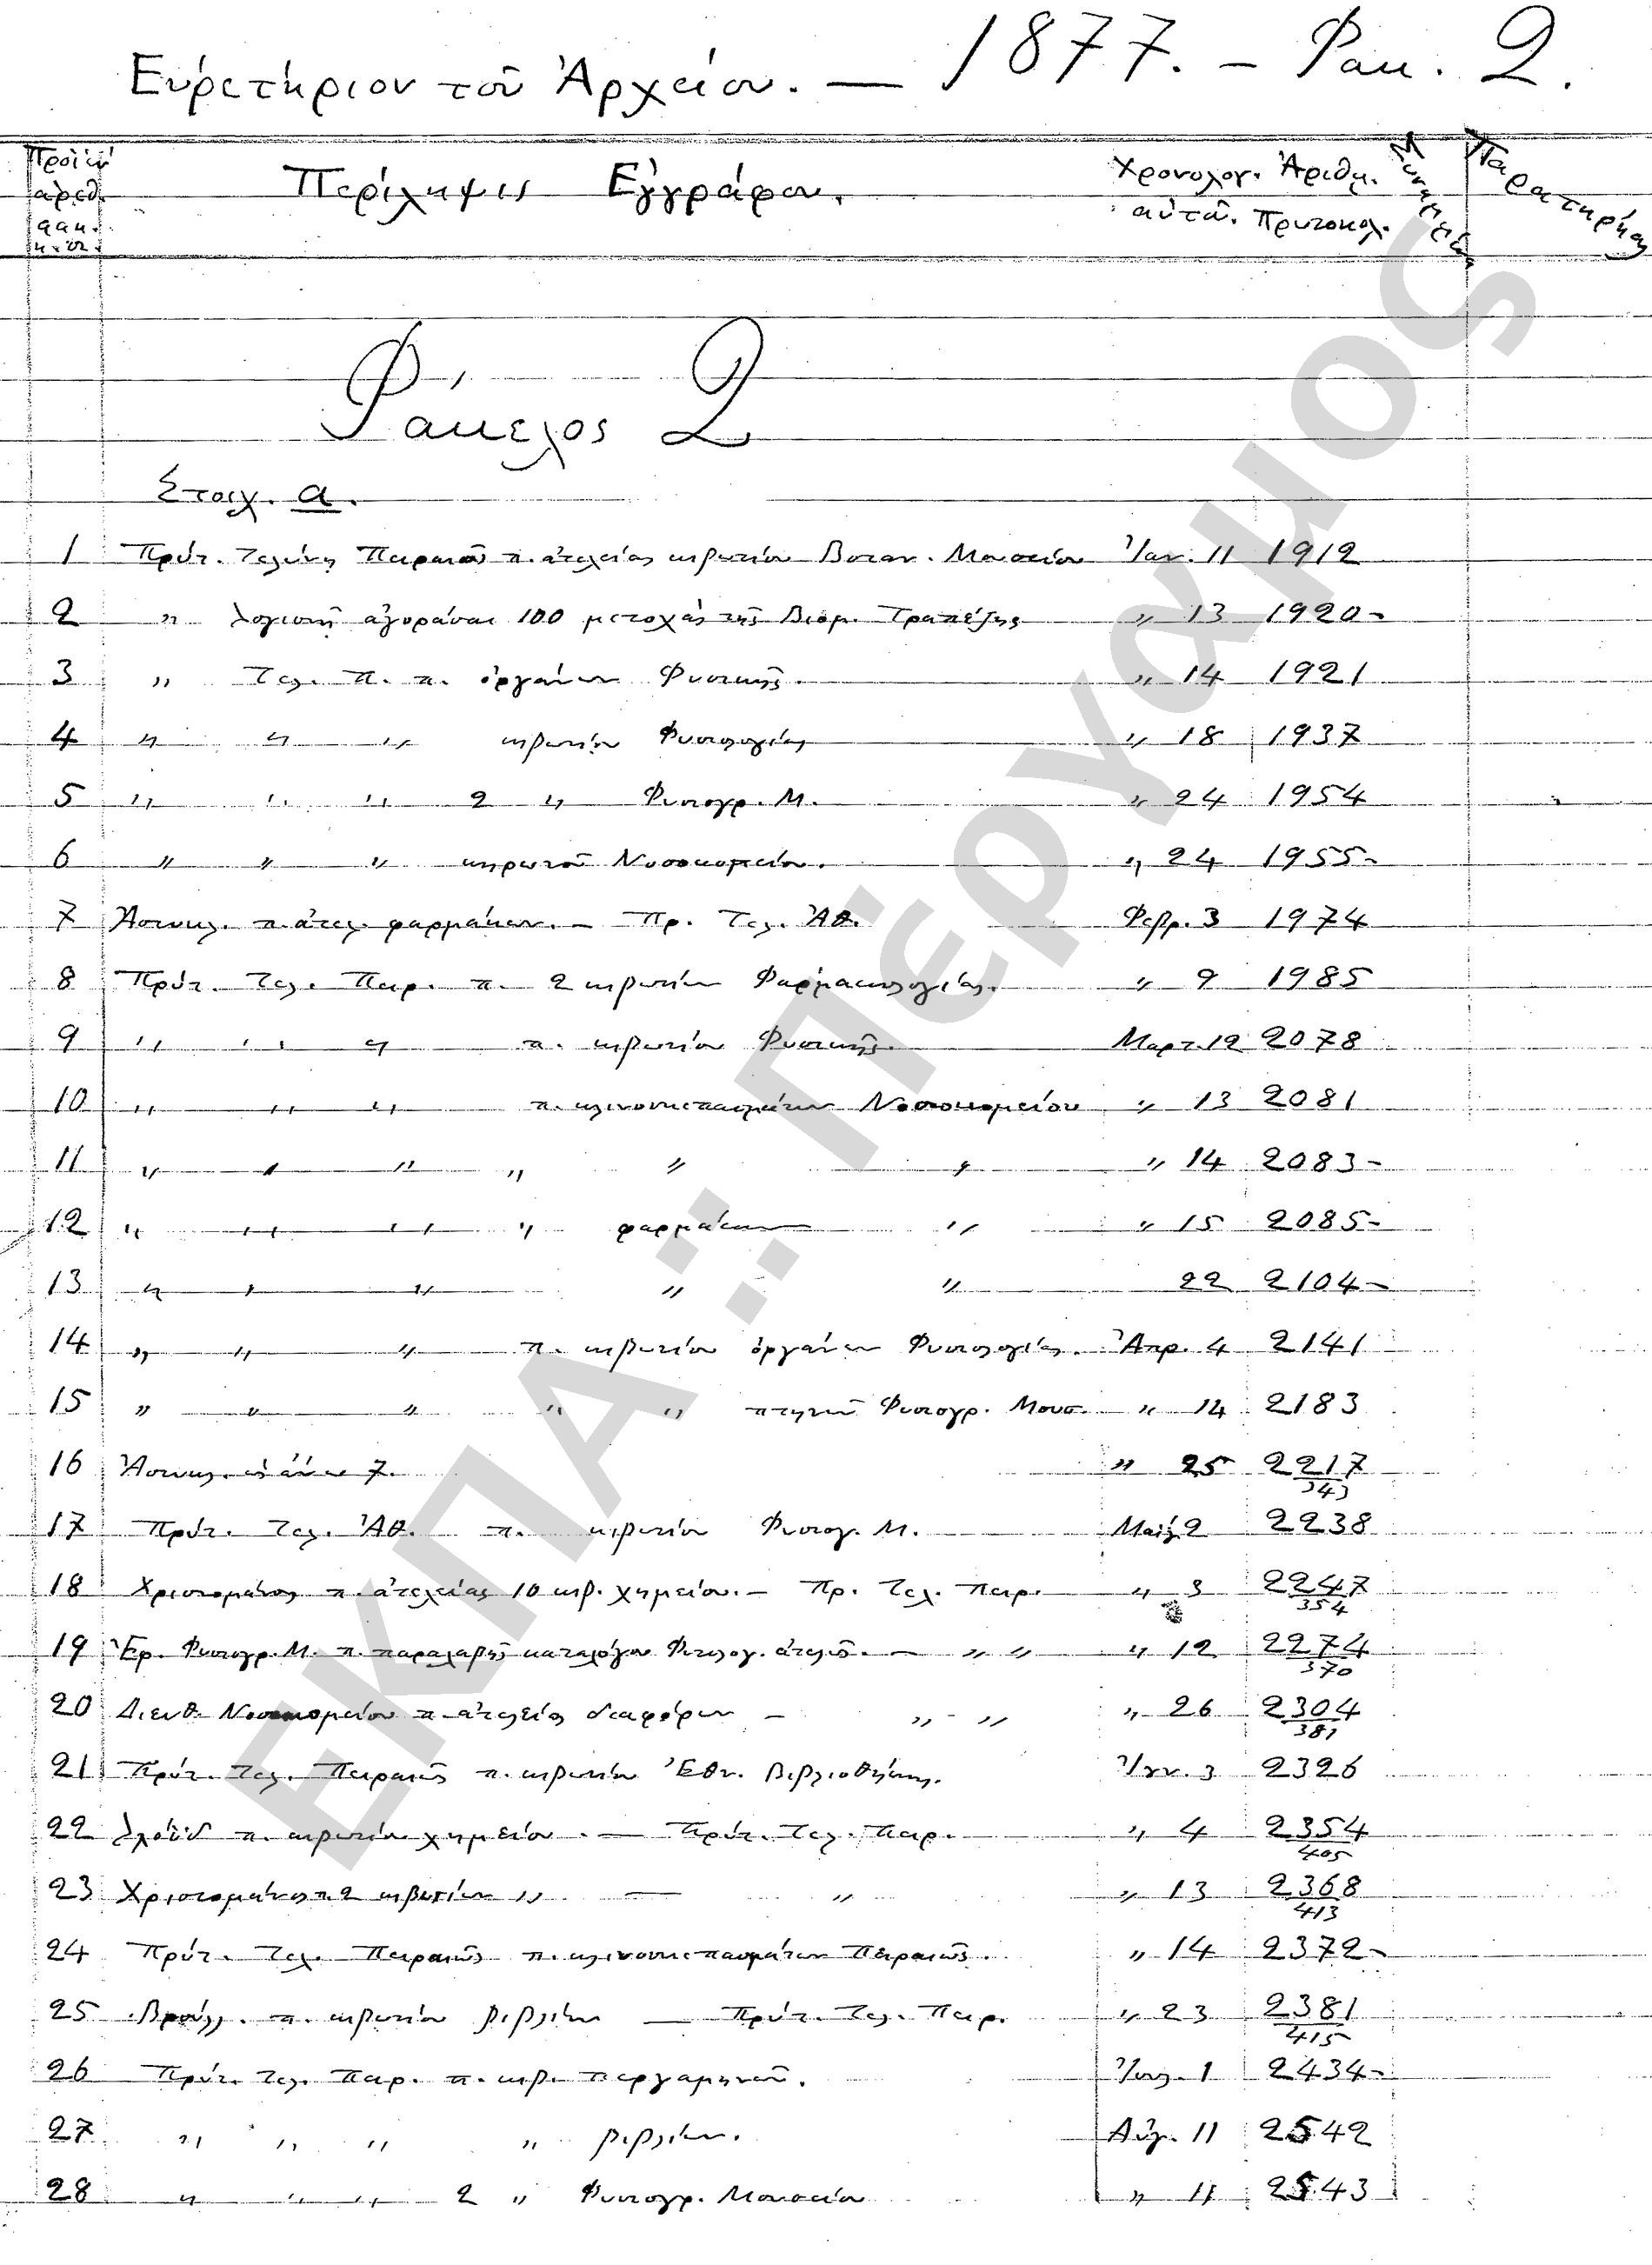 Εὑρετήριον τοῦ Ἀρχείου. — 1877. — Φακ. 2.
Περίληψις Ἐγγράφου. Χρονολογ. Ἀριθμ.
αὐτοῦ. Πρωτοκολ.
Φάκελος 2
Στοιχ. α.
1 Πρύτ. Τελώνῃ Πειραιῶς π. ἀτελείας κιβωτίου Βοταν. Μουσείου Ἰαν. 11 1912
2 " λογιστῇ ἀγοράσαι 100 μετοχὰς τῆς Βιομ. Τραπέζης " 13 1920-
3 " Τελ. Π. π. ὀργάνων Φυσικῆς. " 14 1921
4 " " " κιβωτίου Φυσιολογίας " 18 1937
5 " " " 2 " Φυσιογρ. Μ. " 24 1954
6 " " " κηρωτοῦ Νοσοκομείου. " 24 1955-
7 Ἀστυκλ. π. ἀτελ. φαρμάκων. — Πρ. Τελ. Ἀθ. Φεβρ. 3 1974
8 Πρύτ. Τελ. Πειρ. π. 2 κιβωτίων Φαρμακολογίας. " 9 1985
9 " " " π. κιβωτίου Φυσικῆς. Μαρτ. 12 2078
10 " " " π. κλινοσκεπασμάτων Νοσοκομείου " 13 2081
11 " " " " " " " 14 2083-
12 " " " " φαρμάκων " " 15 2085-
13 " " " " " 22 2104-
14 " " " π. κιβωτίου ὀργάνων Φυσιολογίας. Ἀπρ. 4 2141
15 " " " " " πτηνῶν Φυσιογρ. Μουσ. " 14 2183
16 Ἀστυκλ. ὡς ἄνω 7. " 25 2217
343
17 Πρύτ. Τελ. Ἀθ. π. κιβωτίου Φυσιογ. Μ. Μαΐου 2 2238
18 Χρηστομάνος π. ἀτελείας 10 κιβ. χημείου. — Πρ. Τελ. Πειρ. " 3 2247
354
19 Ἐφ. Φυσιογρ. Μ. π. παραλαβῆς καταλόγου Φυσιολογ. ἀτελῶς. — " " " 12 2274
370
20 Διευθ. Νοσοκομείου π. ἀτελείας διαφόρων — " " " 26 2304
381
21 Πρύτ. Τελ. Πειραιῶς π. κιβωτίου Ἐθν. Βιβλιοθήκης. Ἰουν. 3 2326
22 Λλόϋδ π. κιβωτίου χημείου. — Πρύτ. Τελ. Πειρ. " 4 2354
405
23 Χρηστομάνος π. 2 κιβωτίων " — " " 13 2368
413
24 Πρύτ. Τελ. Πειραιῶς π. κλινοσκεπασμάτων Πειραιῶς. " 14 2372-
25 π. κιβωτίου βιβλίων — Πρύτ. Τελ. Πειρ. " 23 2381
415
26 Πρύτ. Τελ. Πειρ. π. κιβ. περγαμηνῶν. Ἰουλ. 1 2434-
27 " " " " βιβλίων. Αὐγ. 11 2542
28 " " " 2 " Φυσιογρ. Μουσείου " 11 2543
ΕΚΠΑ: Πέργαμος